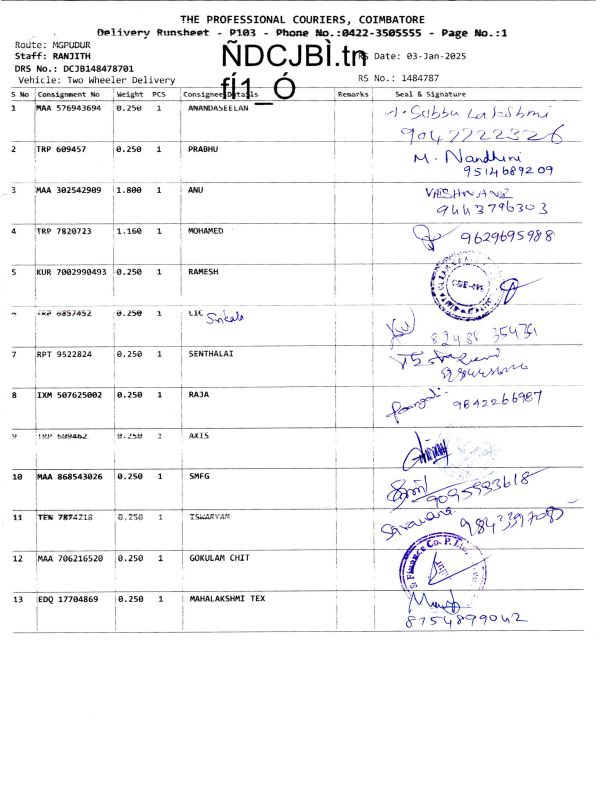 THE PROFESSIONAL COURIERS, COIMBATORE
Delivery Runsheet - P103 - Phone No.:0422-3505555 - Page No.:1
Route: MGPUDUR
Staff: RANJITH
DRS No.: DCJB148478701
Vehicle: Two Wheeler Delivery
ÑDCJBÌ.tn
fÍ1_Ó
RS Date: 03-Jan-2025
RS No.: 1484787
S No Consignment No Weight PCS Consignee Details Remarks Seal & Signature
1 MAA 576943694 0.250 1 ANANDASEELAN
9047222326
2 TRP 609457 0.250 1 PRABHU M. Nandhini
9514689209
3 MAA 302542909 1.800 1 ANU
9443796303
4 TRP 7820723 1.160 1 MOHAMED 9629695988
5 KUR 7002990493 0.250 1 RAMESH
TRP 6857452 0.250 1 LIC
82488 35439
7 RPT 9522824 0.250 1 SENTHALAI
8 IXM 507625002 0.250 1 RAJA 9842266987
9 TRP 609462 0.250 1 AXIS
10 MAA 868543026 0.250 1 SMFG
9095933618
11 TEN 7874218 0.250 1 ISWARYAM
9843397085
12 MAA 706216520 0.250 1 GOKULAM CHIT
Finance Co. P. Ltd.
13 EDQ 17704869 0.250 1 MAHALAKSHMI TEX
8754899042